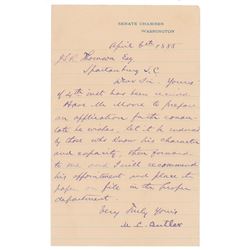 SENATE CHAMBER
WASHINGTON
April 6th 1885
Esq
Spartanburg S.C
Dear Sir. Yours
of 4th inst has been received
Have Mr Moore to prepare
an application for the consu-
late he wishes, let it be indorsed
by those who know his character
and capacity, then forward
to me and I will recommend
his appointment and place the
papers on file in the proper
department.
Very Truly Yours
M C Butler